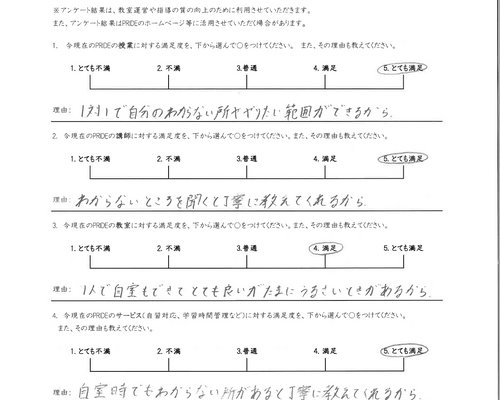 ※アンケート結果は、教室運営や指導の質の向上のために利用させていただきます。
また、アンケート結果はPRIDEのホームページ等に活用させていただく場合があります。
1. 今現在のPRIDEの授業に対する満足度を、下から選んで○をつけてください。 また、その理由も教えてください。
1.とても不満 2. 不満 3.普通 4. 満足 5. とても満足
理由: 1対1で自分のわからない所ややりたい範囲ができるから.
2. 今現在のPRIDEの講師に対する満足度を、下から選んで○をつけてください。また、その理由も教えてください。
1.とても不満 2. 不満 3.普通 4. 満足 5.とても満足
理由: わからないところを聞くと丁寧に教えてくれるから.
3. 今現在のPRIDEの教室に対する満足度を、下から選んで○をつけてください。また、その理由も教えてください。
1.とても不満 2. 不満 3.普通 4. 満足 5.とても満足
理由: 1人で自室もできてとても良いがたまにうるさいときがあるから.
4. 今現在のPRIDEのサービス(自習対応、学習時間管理など)に対する満足度を、下から選んで○をつけてください。
また、その理由も教えてください。
1.とても不満 2. 不満 3.普通 4. 満足 5.とても満足
理由: 自室時でもわからない所があると丁寧に教えてくれるから.